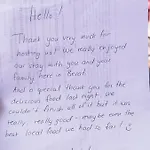 Hello!
Thank you very much for
hosting us! We really enjoyed
our stay with you and your
family here in
And a special thank you for the
delicious food last night. We
couldn't finish all of it but it was
really, really good - maybe even the
best local food we had so far! :)